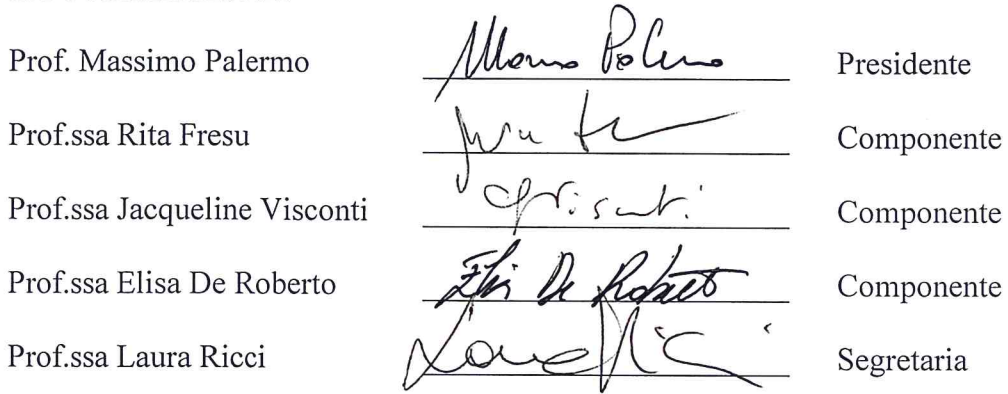 Prof. Massimo Palermo Presidente
Prof.ssa Rita Fresu Componente
Prof.ssa Jacqueline Visconti Componente
Prof.ssa Elisa De Roberto Elisa De Roberto Componente
Prof.ssa Laura Ricci Segretaria